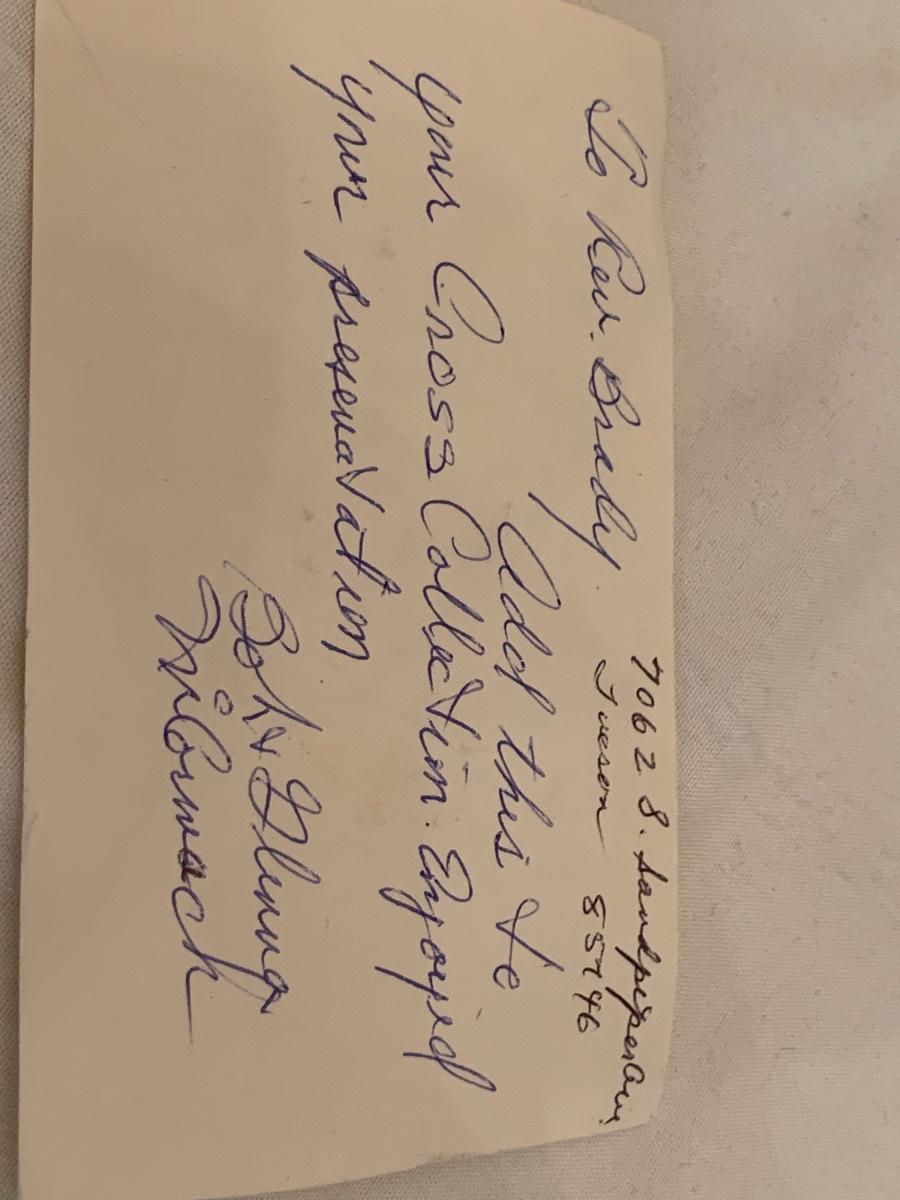 To Rev. Brady.
7062 S. Sandpiper
Tucson 85746
Add this to
your Cross Collection. Enjoyed
your presenatation
Bob & Glenna